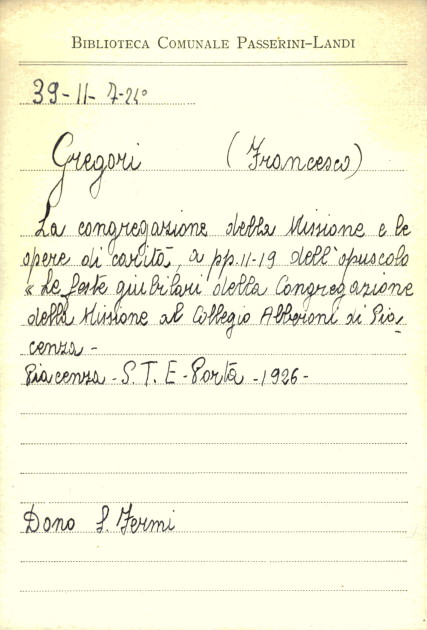 BIBLIOTECA COMUNALE PASSERINI-LANDI
39-II-7-24°
Gregori (Francesco)
La congregazione della Missione e le
opere di carità, a pp. 11-19 dell'opuscolo
« Le feste giubilari della Congregazione
della Missione al Collegio Alberoni di Pia-
cenza -
Piacenza - S. T. E - Porta - 1926 -
Dono S. Fermi